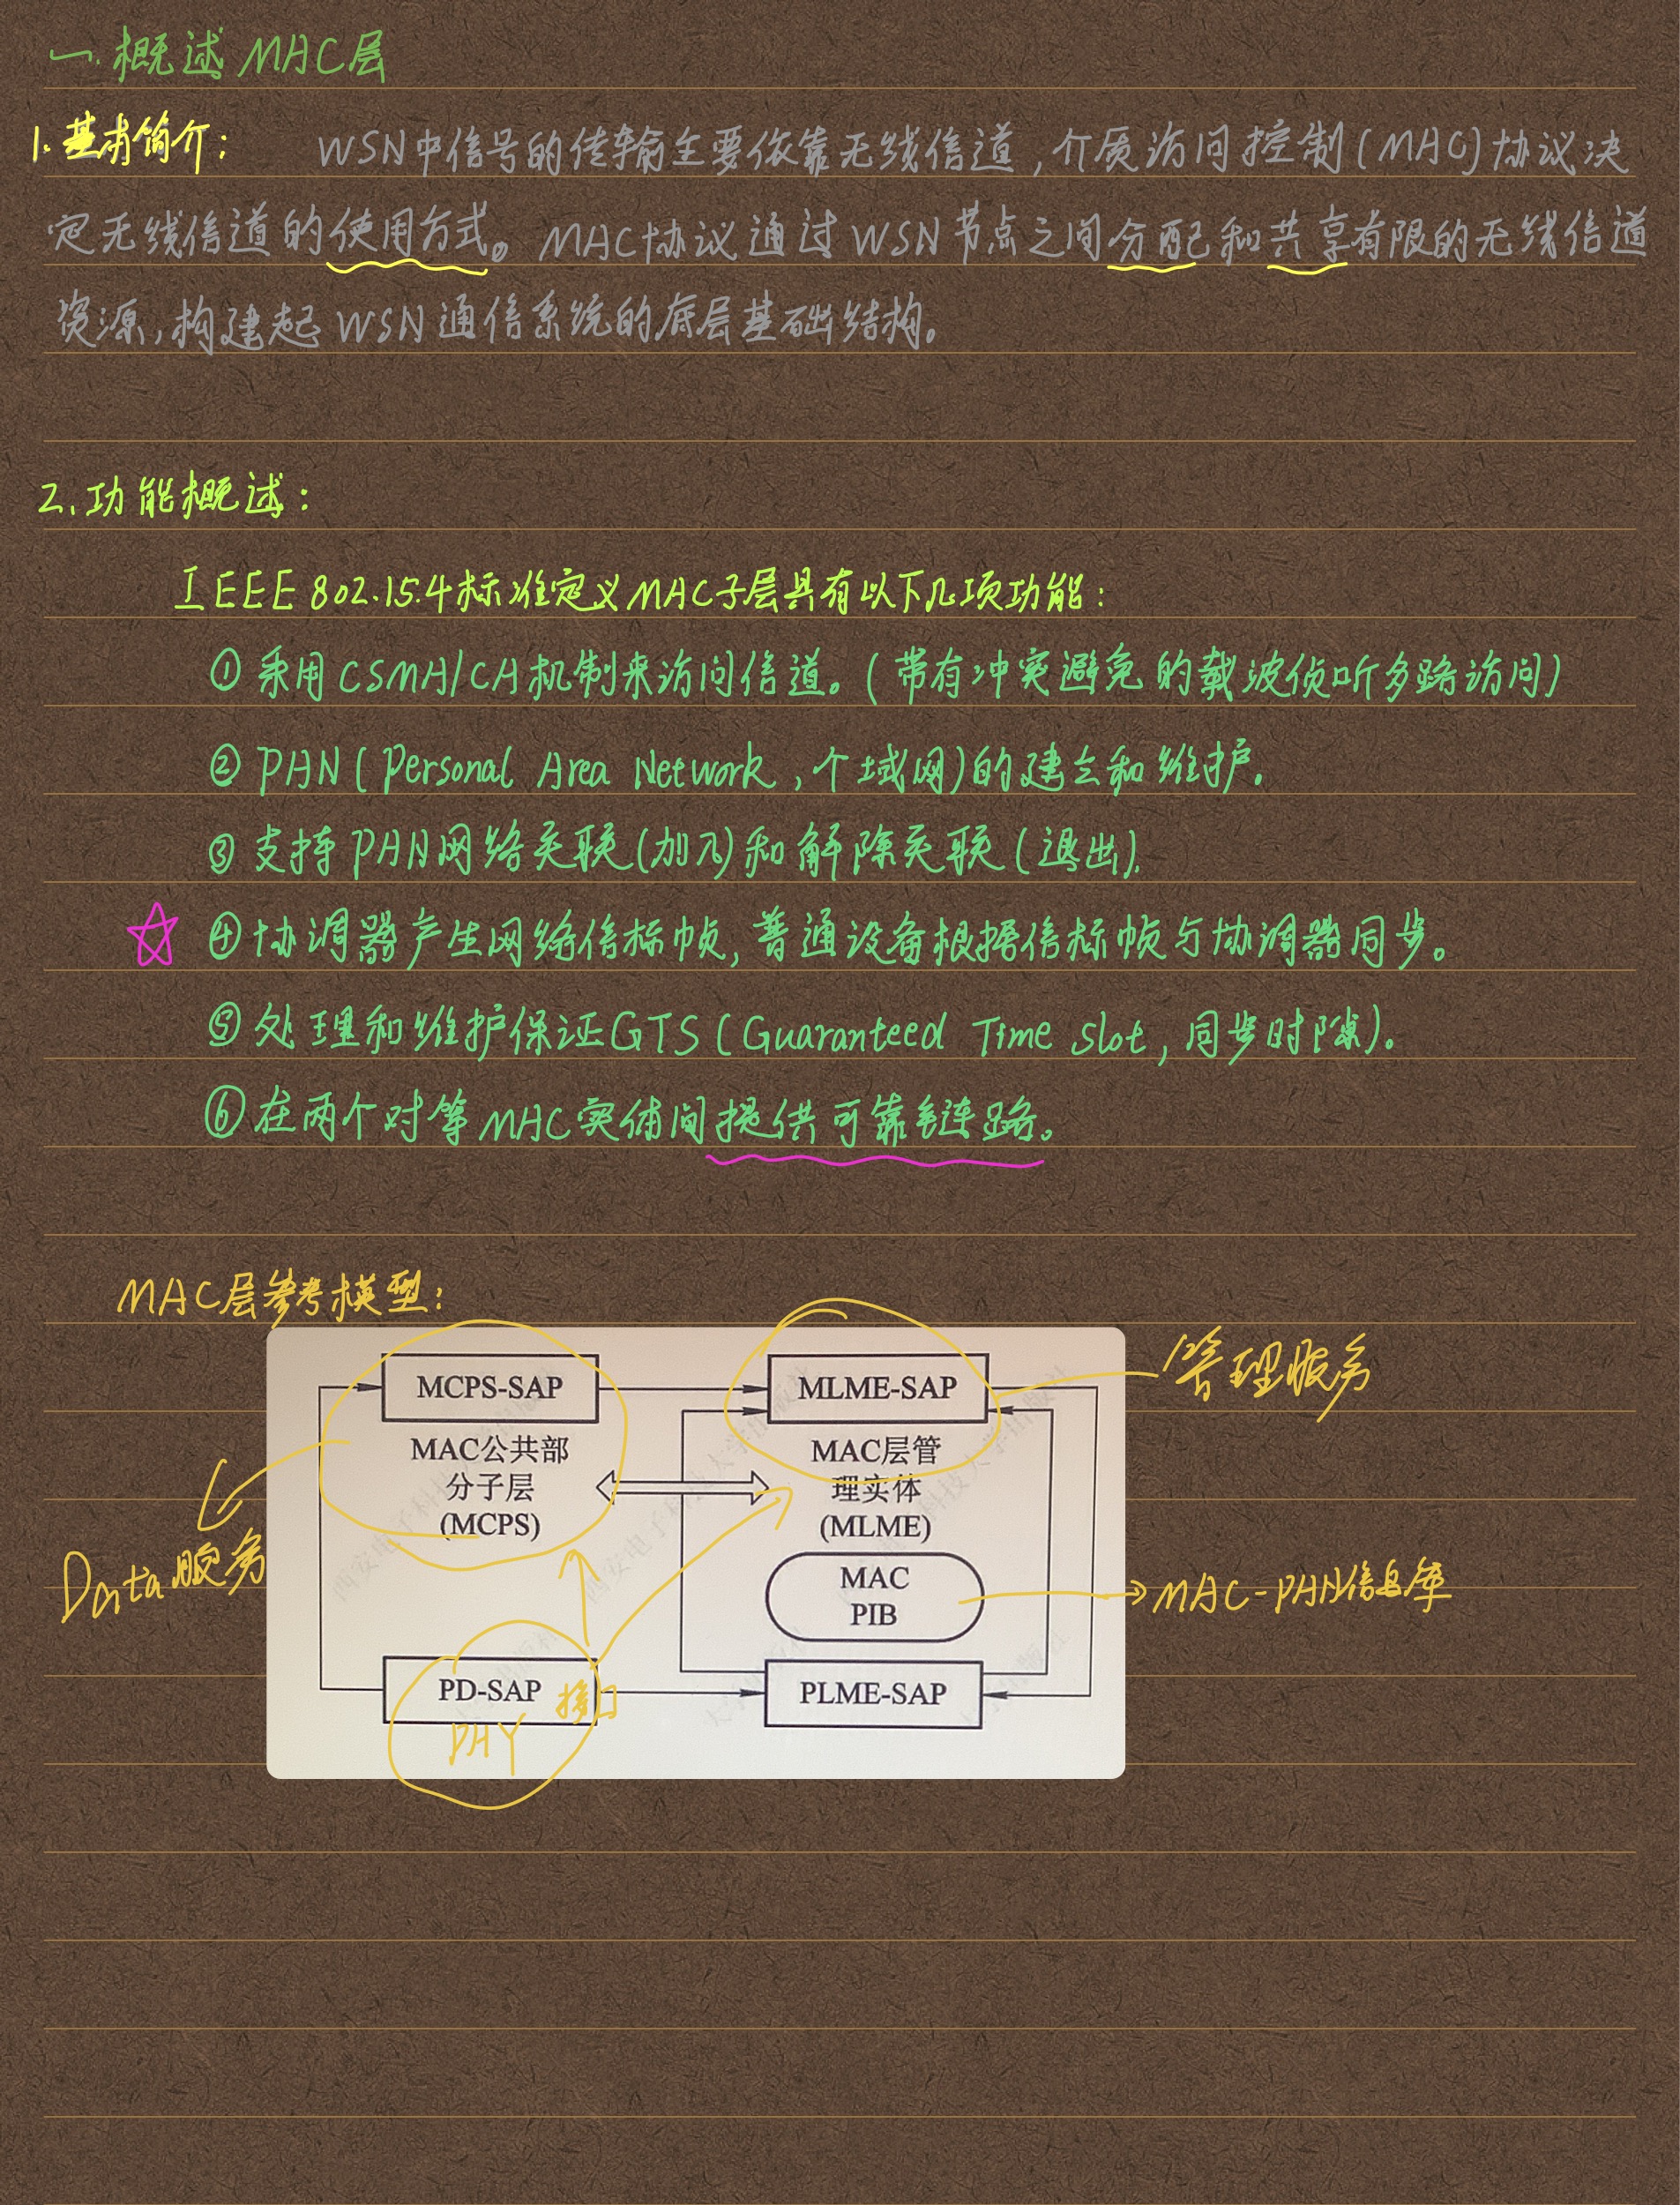 一.概述MAC层
1.基本简介: WSN中信号的传输主要依靠无线信道,介质访问控制(MAC)协议决
定无线信道的使用方式。MAC协议通过WSN节点之间分配和共享有限的无线信道
资源,构建起WSN通信系统的底层基础结构。
2.功能概述:
IEEE 802.15.4标准定义MAC子层具有以下几项功能:
①采用CSMA/CA机制来访问信道。(带有冲突避免的载波侦听多路访问)
②PAN(Personal Area Network,个域网)的建立和维护.
③支持PAN网络关联(加入)和解除关联(退出).
④协调器产生网络信标帧,普通设备根据信标帧与协调器同步。
⑤处理和维护保证GTS(Guaranteed Time Slot,同步时隙)。
⑥在两个对等MAC实体间提供可靠链路。
MAC层参考模型:
MCPS-SAP
MLME-SAP
管理服务
MAC公共部
分子层
(MCPS)
MAC层管
理实体
(MLME)
Data服务
MAC
PIB
MAC-PAN信息库
PD-SAP
接口
PHY
PLME-SAP